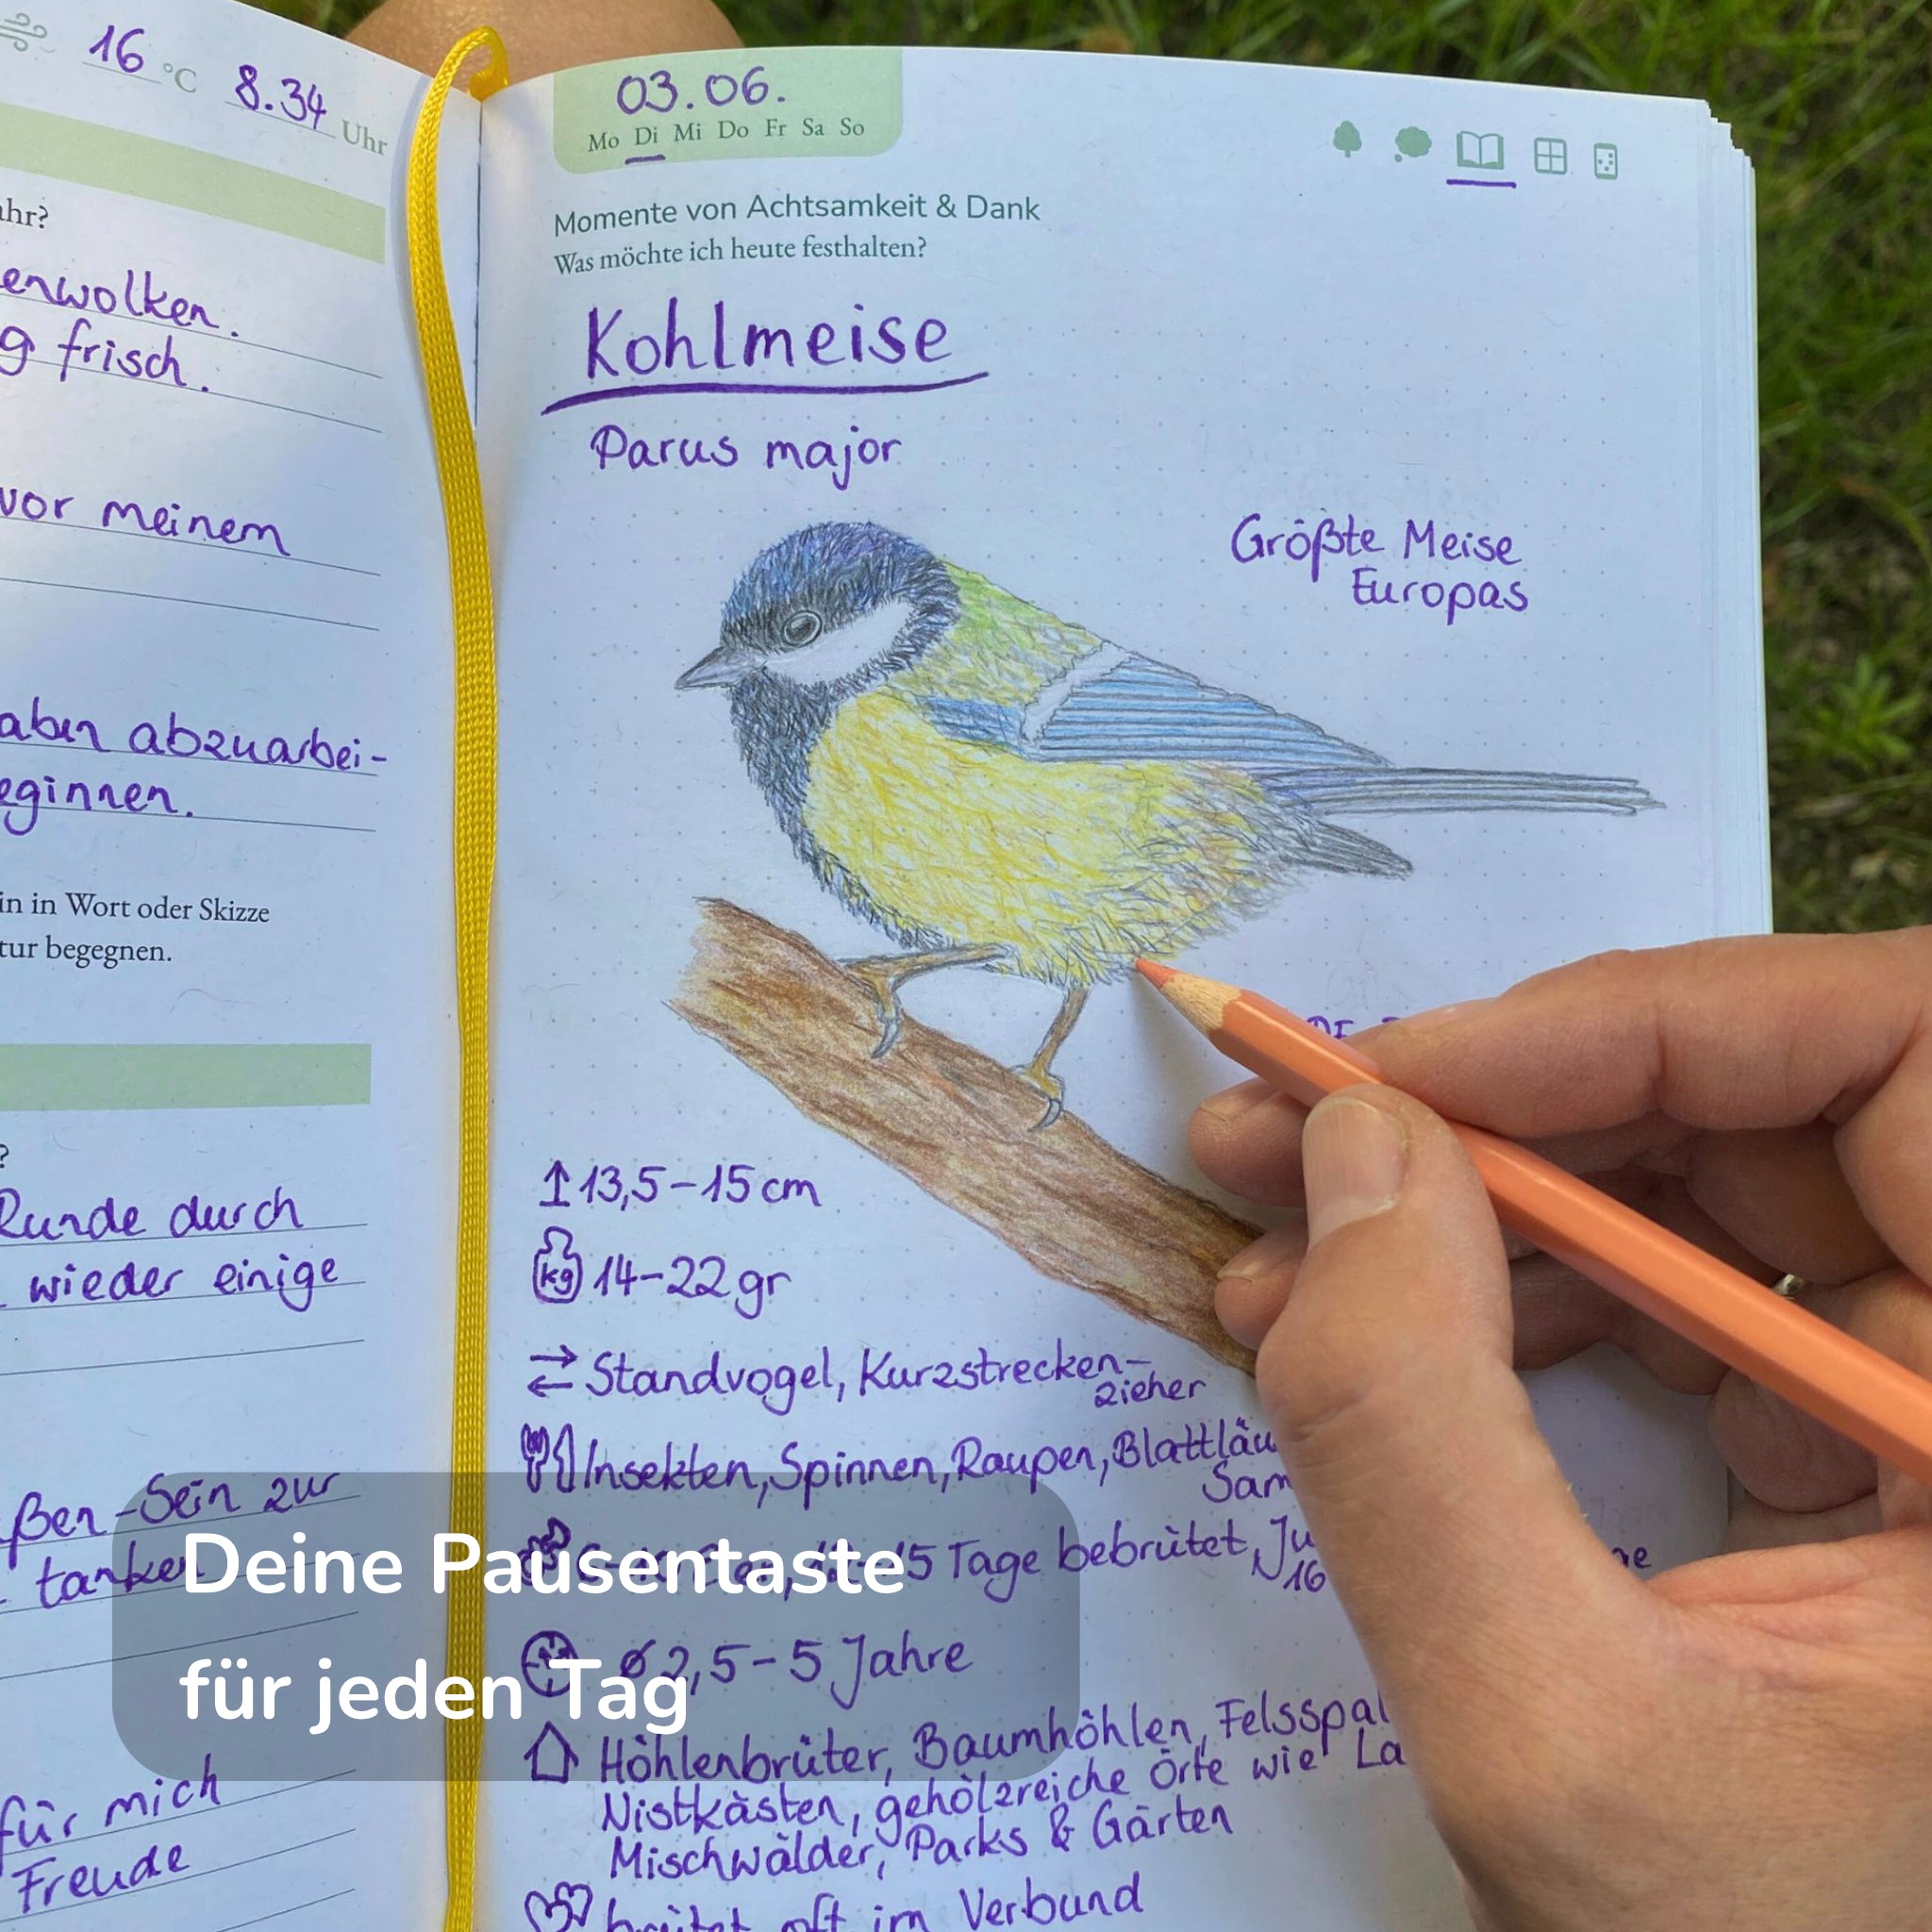 16 °C 8.34 Uhr
ahr?
enwolken.
g frisch.
vor meinem
aben abzuarbei-
eginnen.
in in Wort oder Skizze
tur begegnen.
?
Runde durch
wieder einige
ßen-Sein zur
tanken
für mich
Freude
03.06.
Mo Di Mi Do Fr Sa So
Momente von Achtsamkeit & Dank
Was möchte ich heute festhalten?
Kohlmeise
Parus major
Größte Meise
Europas
13,5-15 cm
kg 14-22 gr
Standvogel, Kurzstrecken-
zieher
Insekten, Spinnen, Raupen, Blattläu
Sam
15 Tage bebrütet, Ju
16
Ø 2,5-5 Jahre
Höhlenbrüter, Baumhöhlen, Felsspal
Nistkästen, gehölzreiche Orte wie La
Mischwälder, Parks & Gärten
brütet oft im Verbund
Deine Pausentaste
für jeden Tag